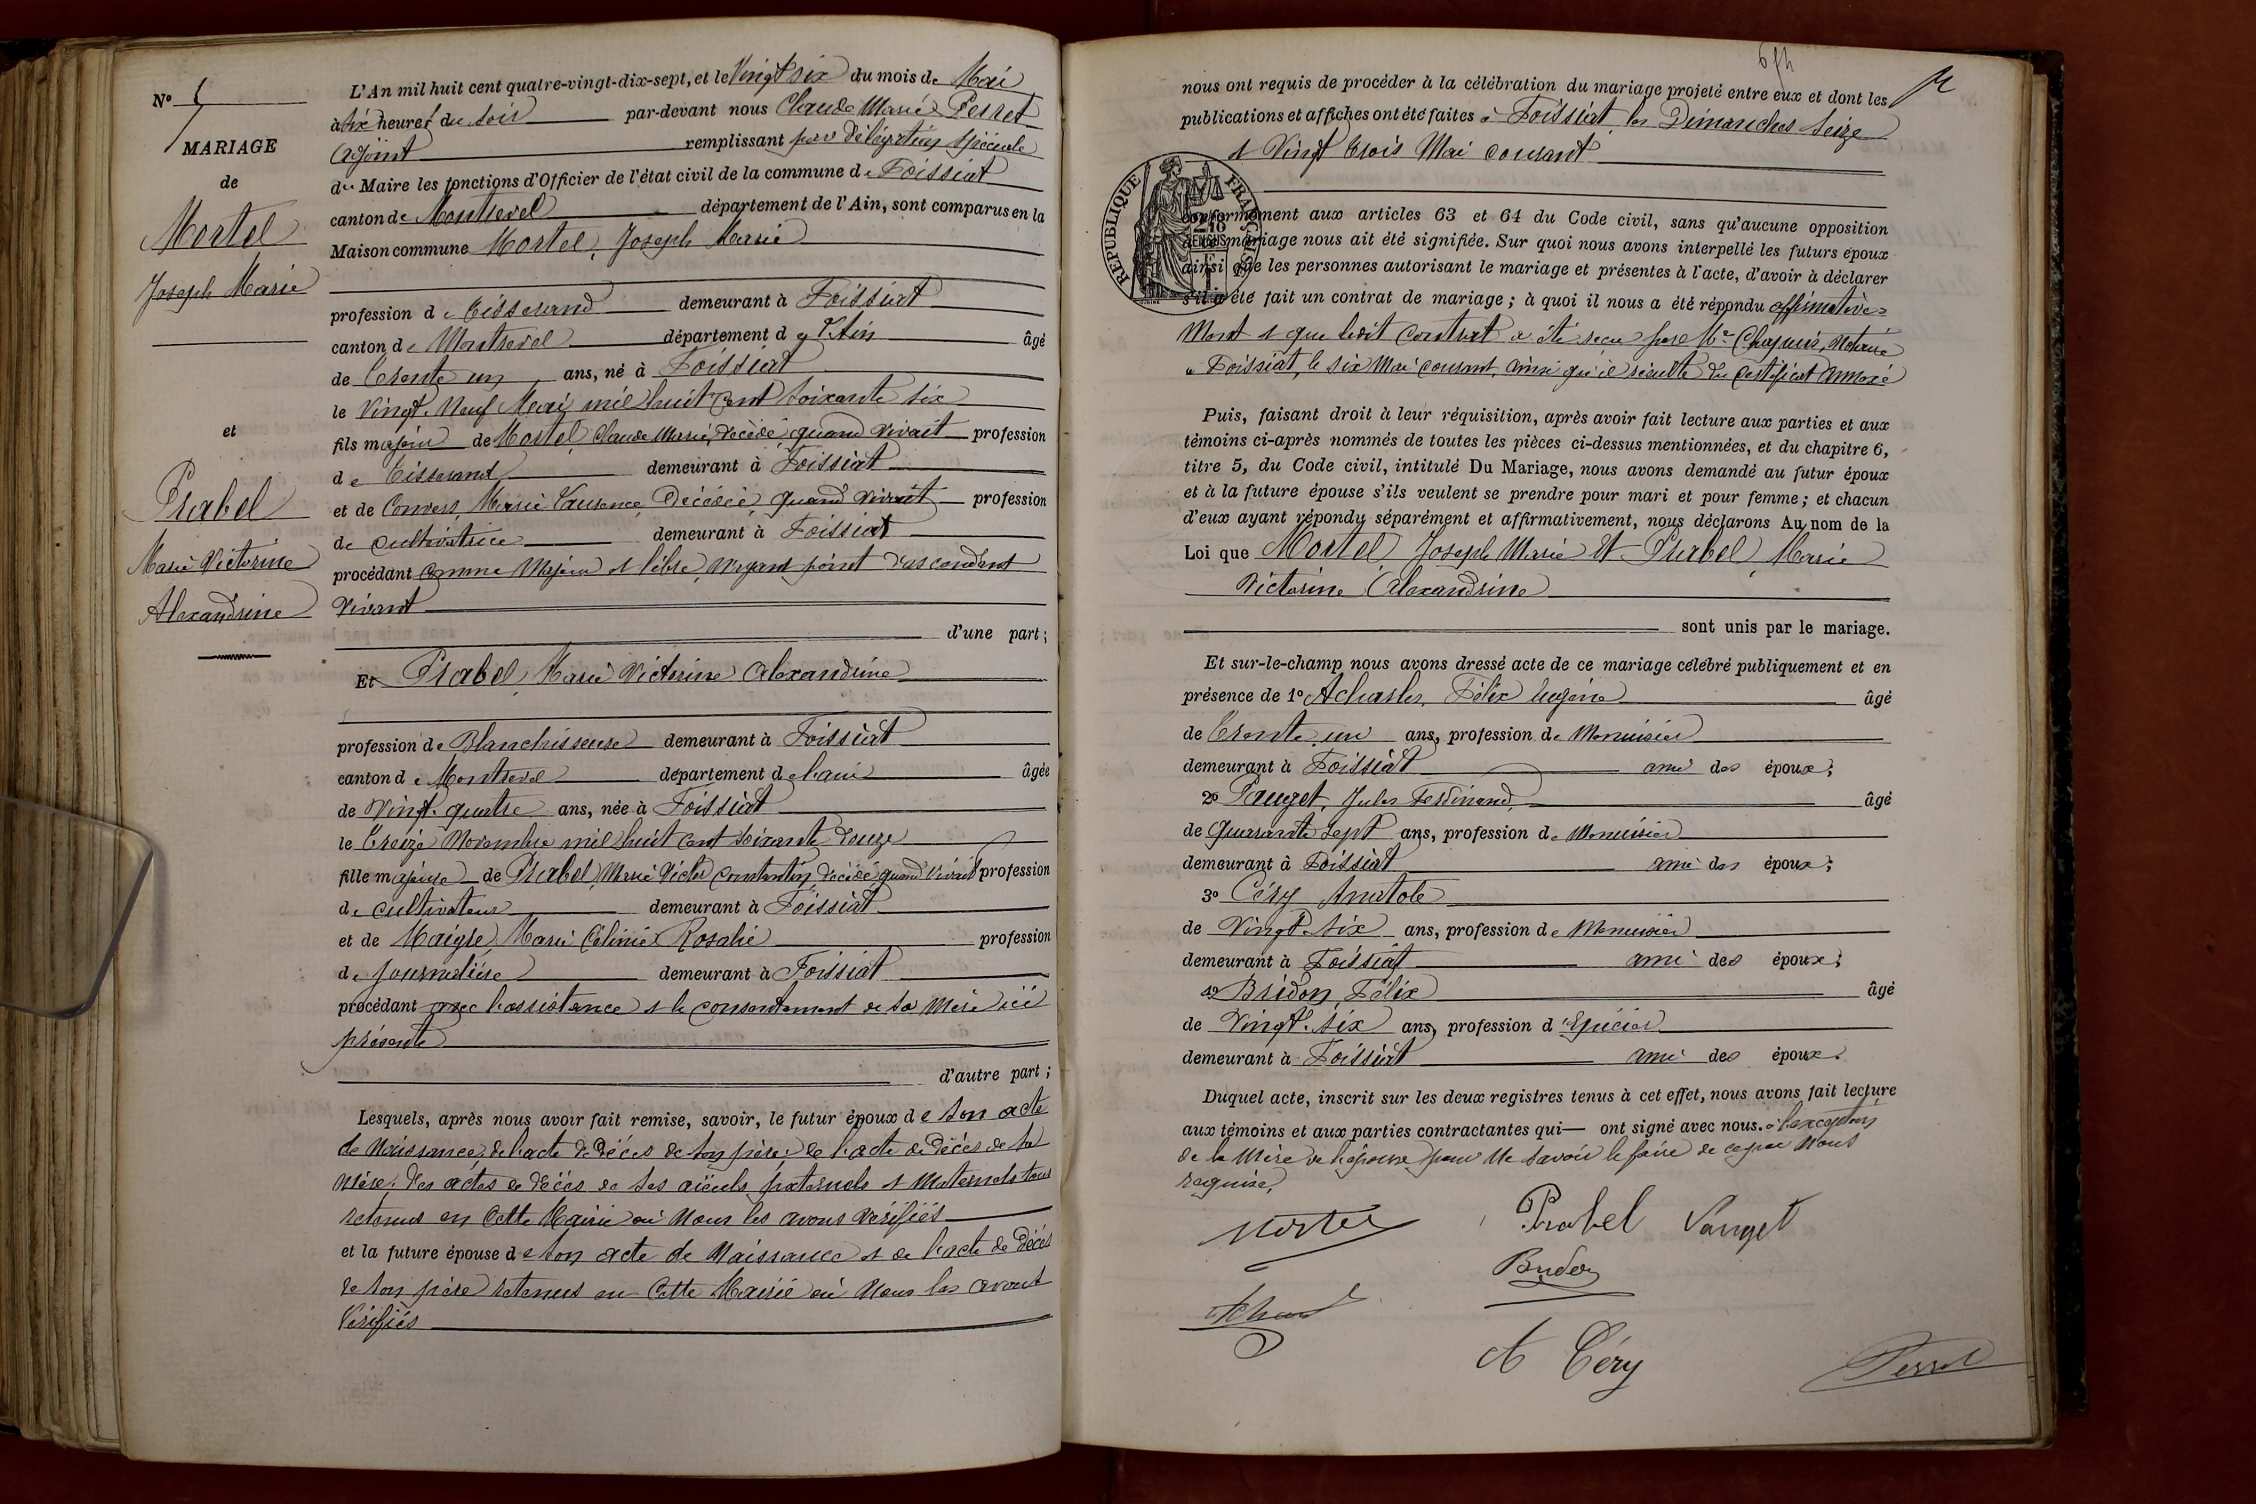 N° 5
MARIAGE
de
Mortel
Joseph Marie
et
Prabel
Marie Victorine
Alexandrine
L'An mil huit cent quatre-vingt-dix-sept, et le Vingt six du mois de Mai
à six heures du soir par-devant nous Claude Marie Perret
adjoint remplissant par délégation spéciale
du Maire les fonctions d'Officier de l'état civil de la commune de Foissiat
canton de Montrevel département de l'Ain, sont comparus en la
Maison commune Mortel, Joseph Marie
profession de Tisserand demeurant à Foissiat
canton de Montrevel département de l'Ain âgé
de Trente un ans, né à Foissiat
le Vingt-Neuf Mai mil huit cent soixante six
fils majeur de Mortel, Claude Marie, décédé, quand vivait profession
de Tisserand demeurant à Foissiat
et de Convers, Marie Laurence, Décédée, quand vivait profession
de cultivatrice demeurant à Foissiat
procédant comme Majeur et libre, N'ayant point d'ascendant
vivant
d'une part;
Et Prabel, Marie Victorine Alexandrine
profession de Blanchisseuse demeurant à Foissiat
canton de Montrevel département de l'ain âgée
de Vingt-quatre ans, née à Foissiat
le Treize Novembre mil huit cent soixante douze
fille majeure de Prabel, Marie Victor Constantin, décédé quand vivait profession
de cultivateur demeurant à Foissiat
et de Maigre, Marie Célinie Rosalie profession
de journalière demeurant à Foissiat
procédant avec l'assistance et le consentement de sa Mère ici
présente
d'autre part;
Lesquels, après nous avoir fait remise, savoir, le futur époux de son acte
de Naissance, de l'acte de Décès de son père, de l'acte de Décès de sa
Mère, des actes de décès de ses aïeuls paternels et Maternels tous
retenus en Cette Mairie où Nous les avons Vérifiés
et la future épouse de son acte de Naissance et de l'acte de Décès
de son père retenus en Cette Mairie où Nous les avons
Vérifiés
nous ont requis de procéder à la célébration du mariage projeté entre eux et dont les
publications et affiches ont été faites à Foissiat les Dimanches Seize
et Vingt trois Mai courant
RÉPUBLIQUE FRANÇAISE
conformément aux articles 63 et 64 du Code civil, sans qu'aucune opposition
à ce mariage nous ait été signifiée. Sur quoi nous avons interpellé les futurs époux
ainsi que les personnes autorisant le mariage et présentes à l'acte, d'avoir à déclarer
s'il a été fait un contrat de mariage; à quoi il nous a été répondu affirmative=
Ment et que ledit contrat a été reçu par Me Chapuis, Notaire
à Foissiat, le six Mai courant, ainsi qu'il résulte du certificat annexé
Puis, faisant droit à leur réquisition, après avoir fait lecture aux parties et aux
témoins ci-après nommés de toutes les pièces ci-dessus mentionnées, et du chapitre 6,
titre 5, du Code civil, intitulé Du Mariage, nous avons demandé au futur époux
et à la future épouse s'ils veulent se prendre pour mari et pour femme; et chacun
d'eux ayant répondu séparément et affirmativement, nous déclarons Au nom de la
Loi que Mortel, Joseph Marie Et Prabel, Marie
Victorine Alexandrine
sont unis par le mariage.
Et sur-le-champ nous avons dressé acte de ce mariage célébré publiquement et en
présence de 1° Achard, Félix Eugène âgé
de Trente un ans, profession de Menuisier
demeurant à Foissiat ami des époux;
2° Pauget, Jules Ferdinand, âgé
de quarante sept ans, profession de Menuisier
demeurant à Foissiat ami des époux;
3° Céry Anatole
de Vingt-six ans, profession de Menuisier
demeurant à Foissiat ami des époux;
4° Bridon, Félix âgé
de Vingt-six ans, profession d'Epicier
demeurant à Foissiat ami des époux.
Duquel acte, inscrit sur les deux registres tenus à cet effet, nous avons fait lecture
aux témoins et aux parties contractantes qui ont signé avec nous. à l'exception
de la Mère de l'épouse pour Ne savoir le faire de ce par Nous
requise.
Mortel Prabel Pauget
Bridon
Achard
A Céry Perret